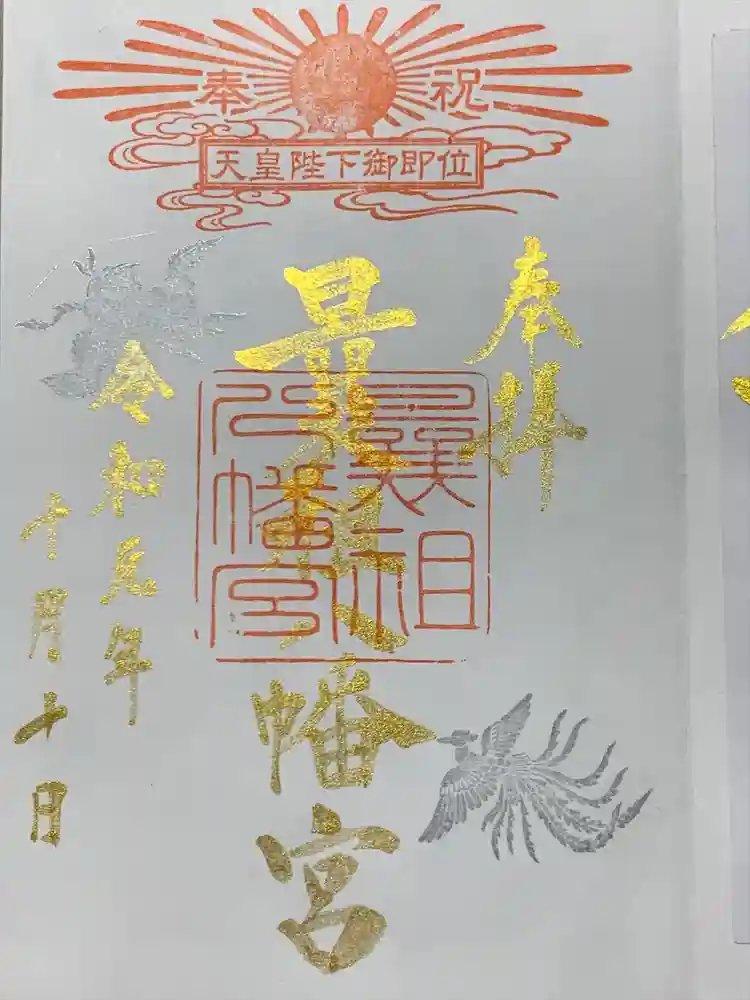 奉祝
天皇陛下御即位
奉拝
曩祖八幡宮
曩祖八幡宮
令和元年
十月十日